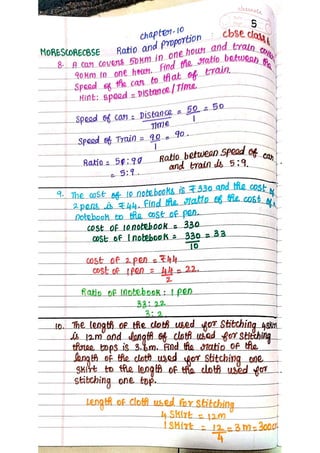 5
chapter-10
cbse class 6
MORESCORECBSE Ratio and Proportion
8. A car covers 50km in one hour and train covers
90km in one hour. Find the ratio between the
speed of the car to that of train.
Hint: speed = Distance / Time
Speed of car = Distance/Time = 50/1 = 50
Speed of Train = 90/1 = 90.
Ratio = 50:90
= 5:9.
Ratio between speed of car
and train is 5:9.
9. The cost of 10 notebooks is ₹330 and the cost of
2 pens is ₹44. Find the ratio of the cost of a
notebook to the cost of pen.
cost of 10 notebook = 330
cost of 1 notebook = 330/10 = 33
cost of 2 pen = ₹44
cost of 1 pen = 44/2 = 22.
Ratio of 1 notebook : 1 pen
33:22
3:2
10. The length of the cloth used for stitching 4 skirt
is 12m and length of cloth used for stitching
three tops is m. Find the ratio of the
length of the cloth used for stitching one
skirt to the length of the cloth used for
stitching one top.
Length of cloth used for stitching
4 skirt = 12m
1 skirt = 12/4 = 3m = 300cm